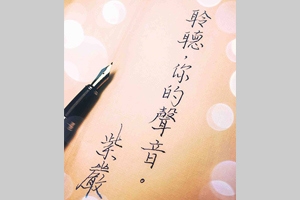 聆聽，你的聲音。
紫巖